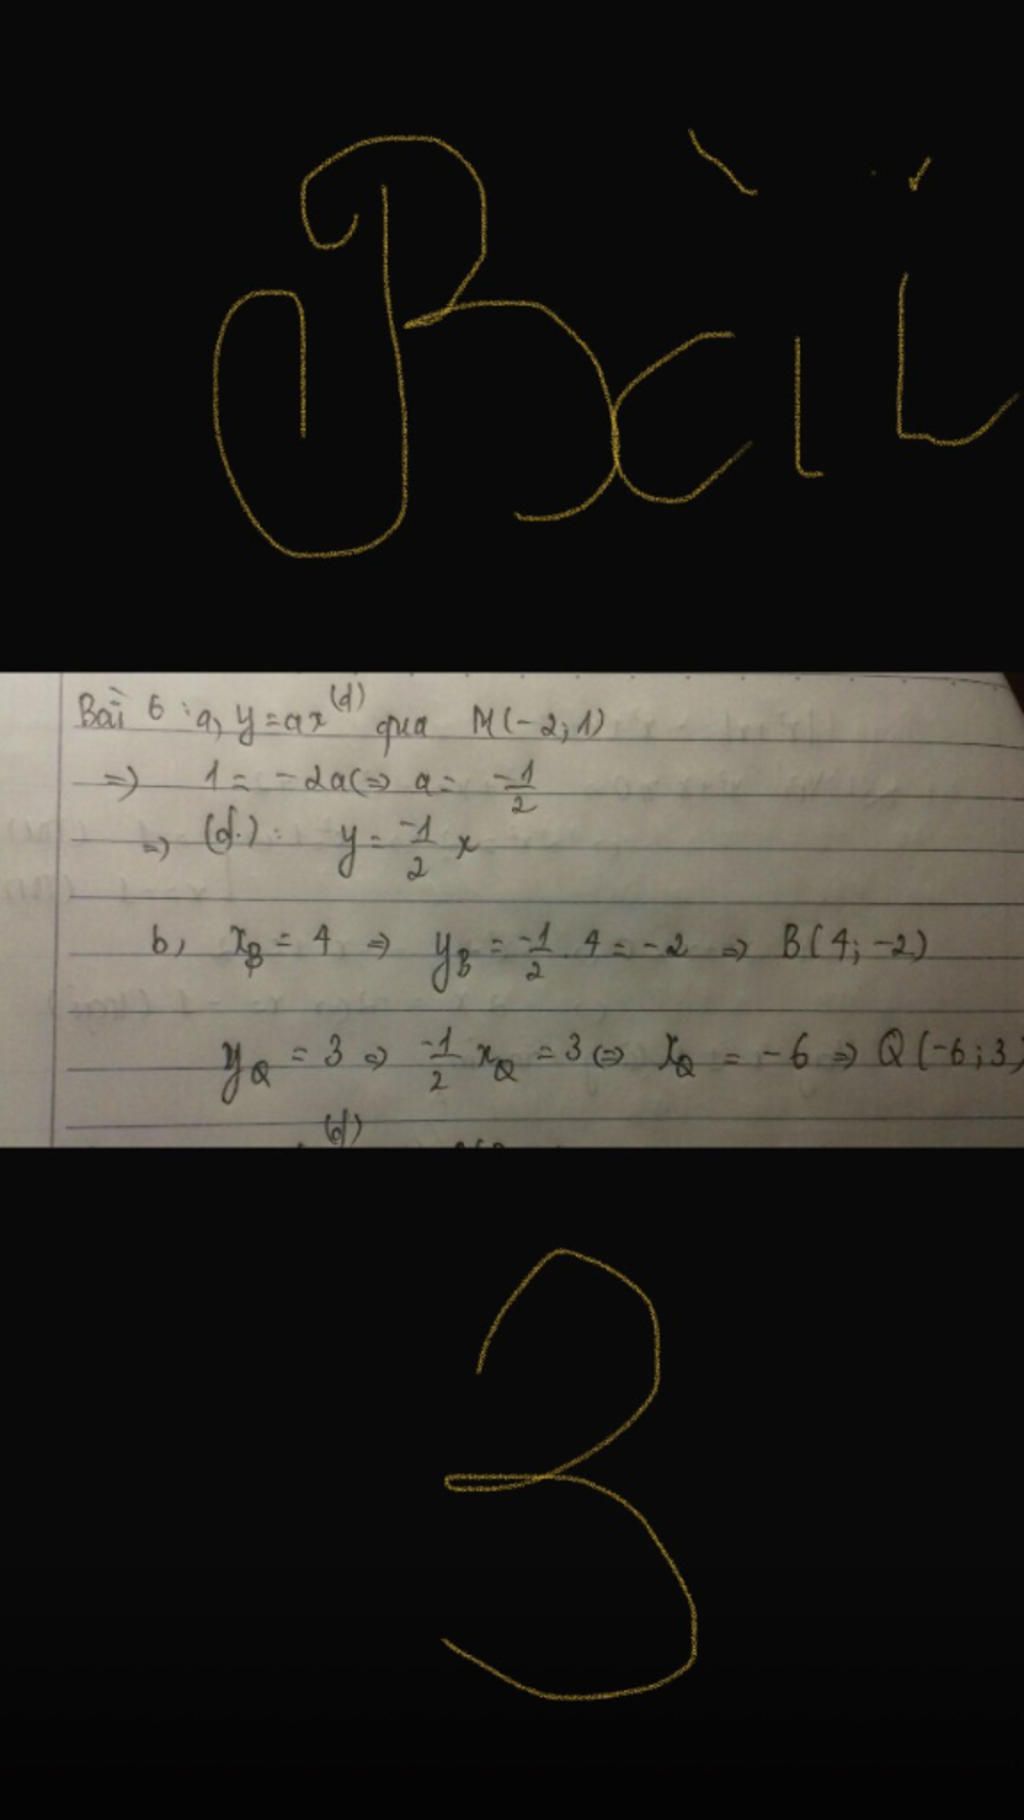 Bài
Bài 6: a, y=ax (d) qua M(-2;1)
=) 1 = -2a (=) a = -1/2
=) (d): y = -1/2 x
b, x_B = 4 => y_B = -1/2 . 4 = -2 => B(4; -2)
y_Q = 3 => -1/2 x_Q = 3 (=) x_Q = -6 => Q(-6;3)
(d)
3